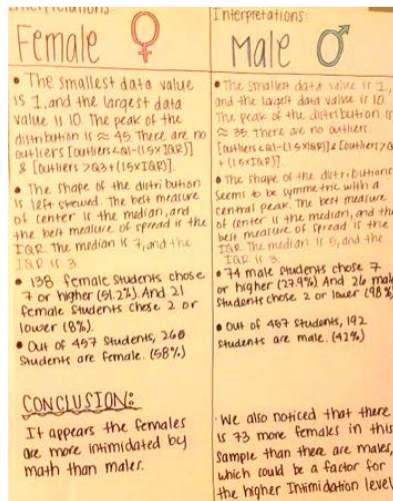 Interpretations:
Female ♀
• The smallest data value
is 1, and the largest data
value is 10. The peak of the
distribution is ≈ 45. There are no
outliers [outliers<Q1-(1.5×IQR)]
& [outliers >Q3+(1.5×IQR)].
• The shape of the distribution
is left skewed. The best measure
of center is the median, and
the best measure of spread is the
IQR. The median is 7, and the
IQR is 3.
• 138 female students chose
7 or higher (51.2%). And 21
female students chose 2 or
lower (8%).
• Out of 457 students, 268
students are female. (58%)
CONCLUSION:
It appears the females
are more intimidated by
math than males.
Interpretations:
Male ♂
• The smallest data value is 1,
and the largest data value is 10.
The peak of the distribution is
≈ 35. There are no outliers.
[outliers<Q1-(1.5×IQR)] & [outliers>Q3
+(1.5×IQR)]
• The shape of the distributions
seems to be symmetric with a
central peak. The best measure
of center is the median, and the
best measure of spread is the
IQR. The median is 5, and the
IQR is 3.
• 74 male students chose 7
or higher (27.9%) And 26 male
students chose 2 or lower (9.8%)
• Out of 457 students, 192
students are male. (42%)
· We also noticed that there
is 73 more females in this
sample than there are males,
which could be a factor for
the higher intimidation level